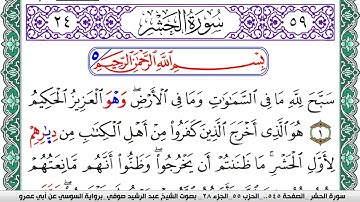 ٥٩ سُورَةُ الْحَشْرِ ٢٤
بِسْمِ اللَّهِ الرَّحْمَٰنِ الرَّحِيمِ
سَبَّحَ لِلَّهِ مَا فِي السَّمَٰوَٰتِ وَمَا فِي الْأَرْضِ وَهْوَ الْعَزِيزُ الْحَكِيمُ
١ هُوَ الَّذِي أَخْرَجَ الَّذِينَ كَفَرُوا مِنْ أَهْلِ الْكِتَٰبِ مِن دِيَٰرِهِمْ
لِأَوَّلِ الْحَشْرِ مَا ظَنَنتُمْ أَن يَخْرُجُوا وَظَنُّوا أَنَّهُم مَّانِعَتُهُمْ
سورة الحشر . الصفحة ٥٤٥.. الحزب ٥٥ الجزء ٢٨ بصوت الشيخ عبد الرشيد صوفي برواية السوسي عن أبي عمرو